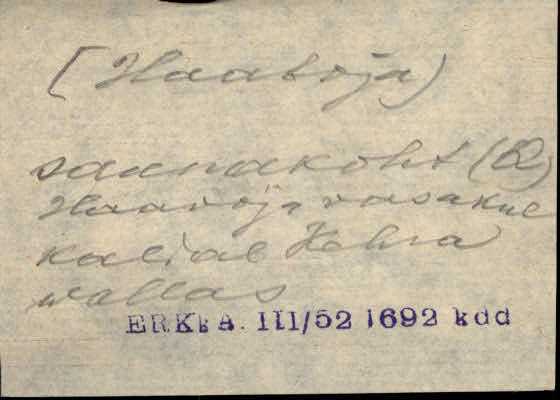 (Haavoja)
saunakoht (R)
Haavoja vasakul
kaldal Kehra
wallas
ERKkA. III/52 1692 kdd